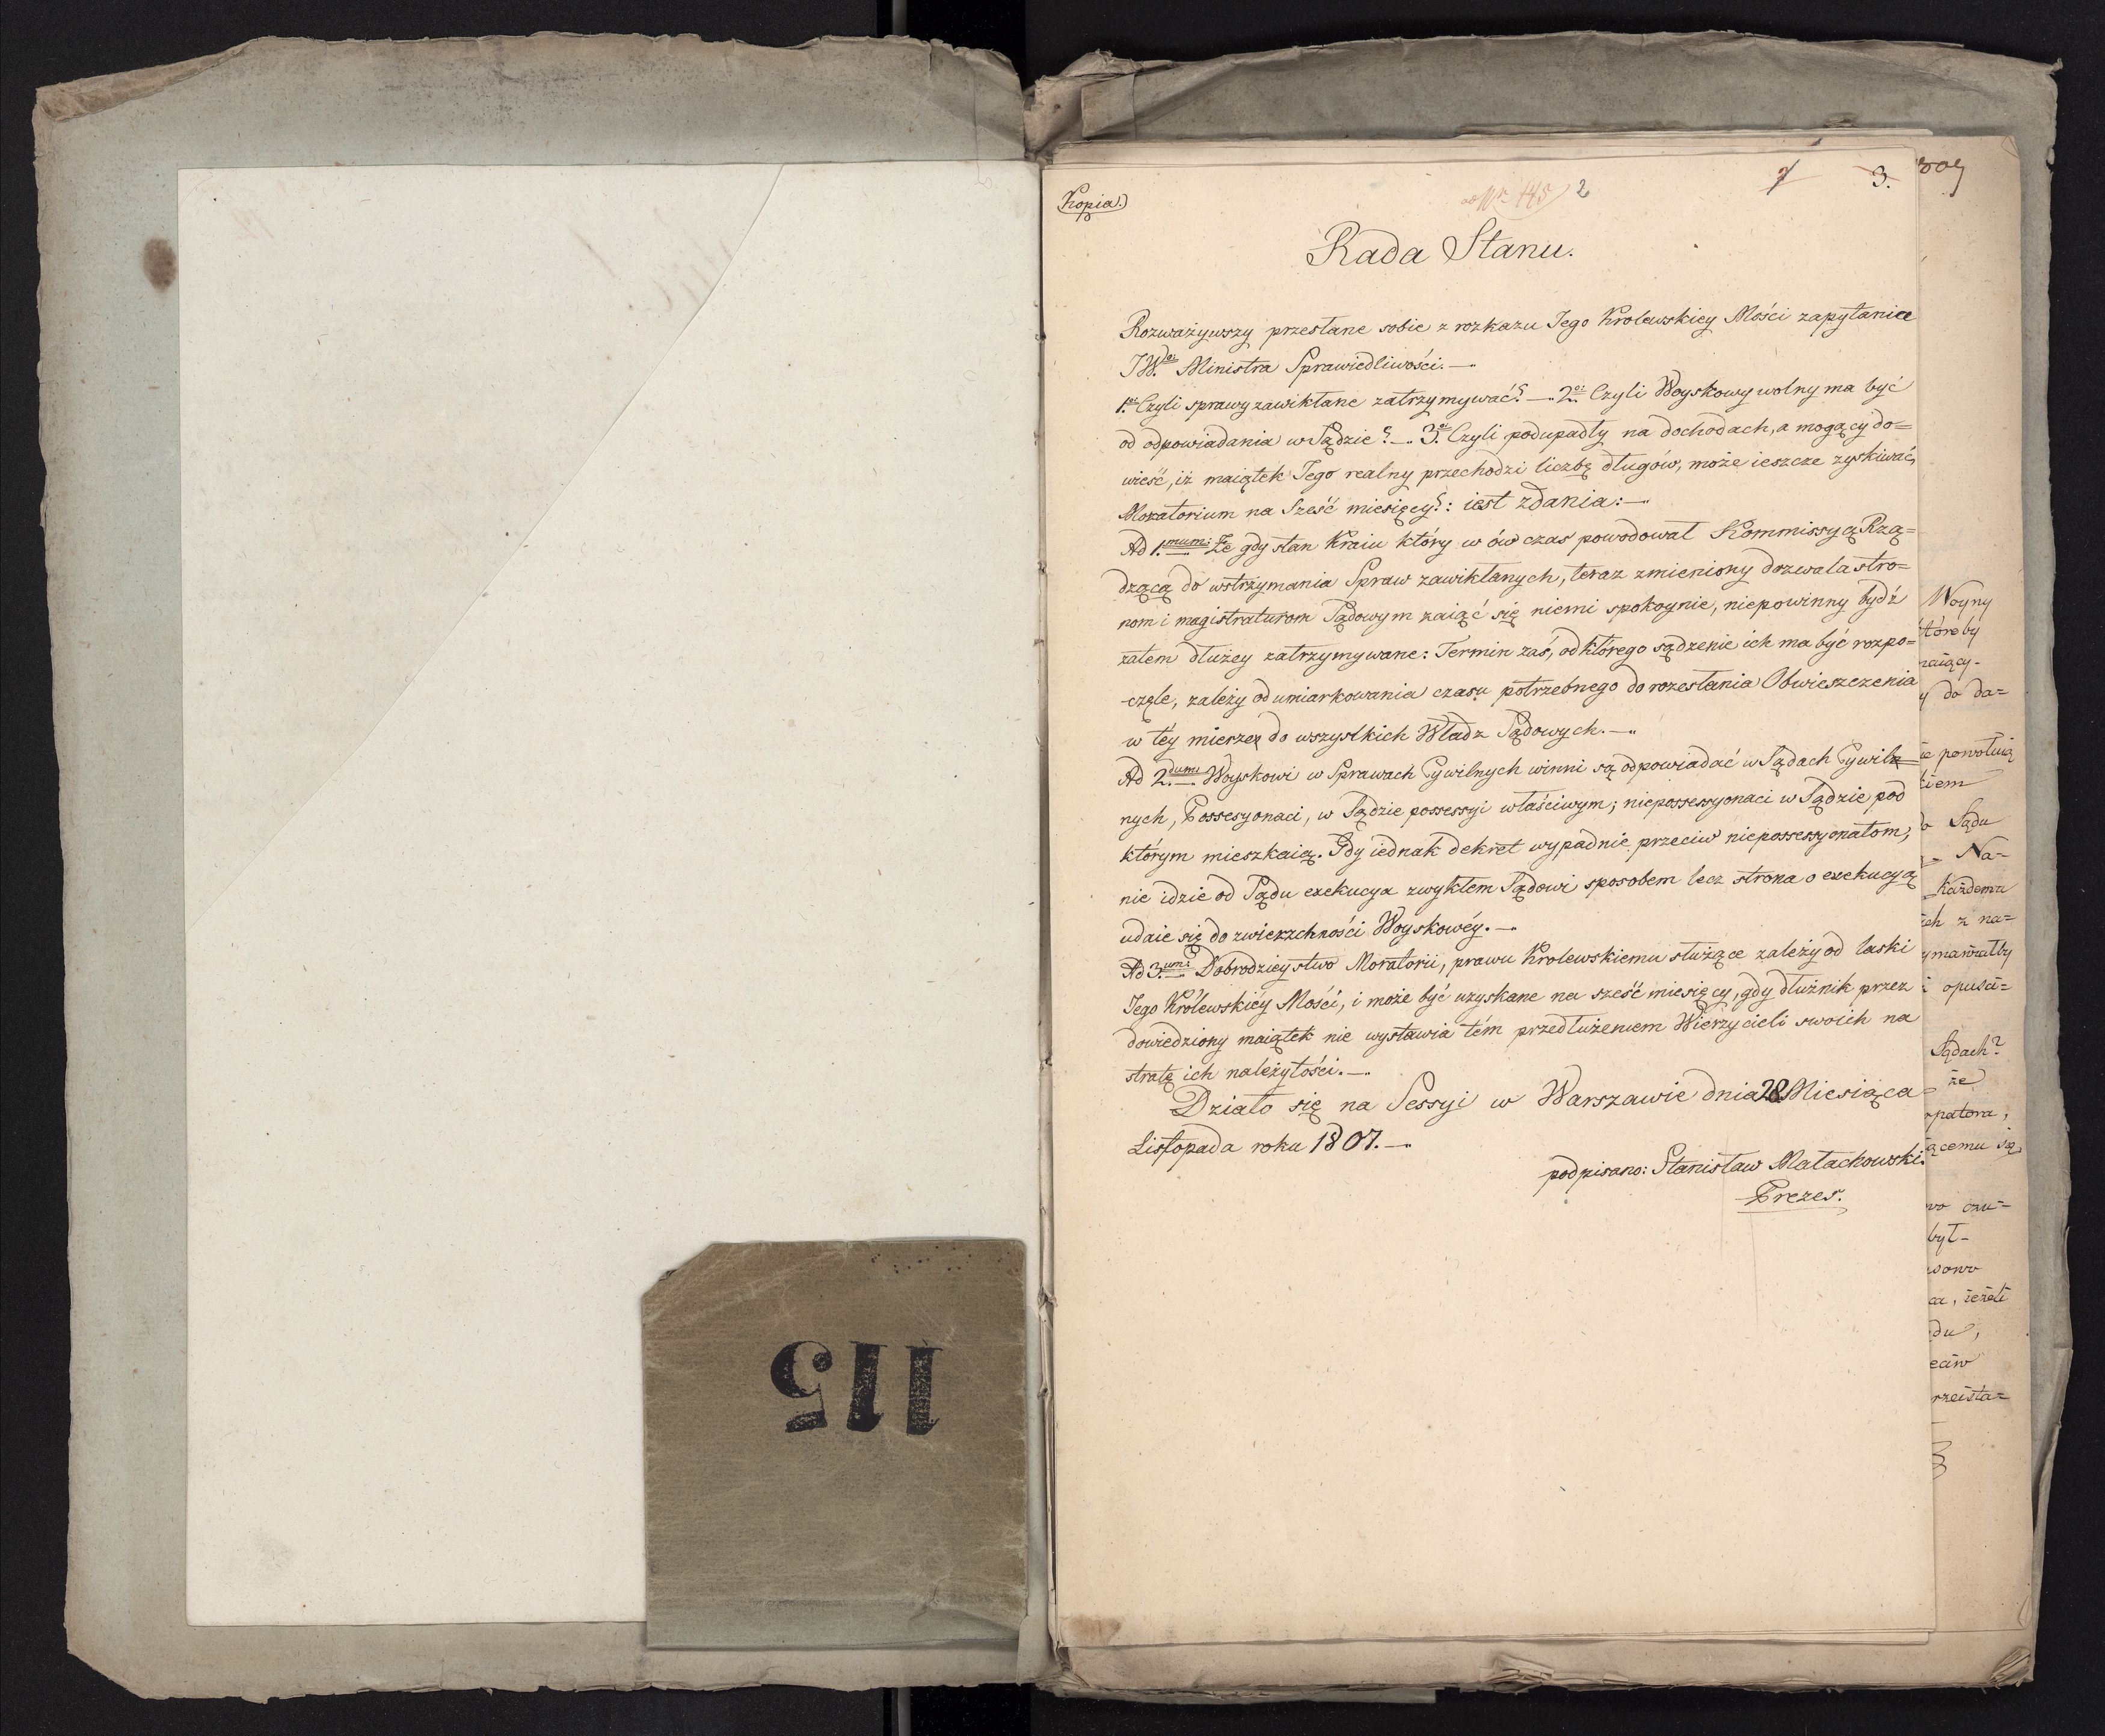 115
Kopia.)
ad Nr 115
2
1
3.
Rada Stanu.
Rozważywszy przesłane sobie z rozkazu Jego Krolewskiey Mości zapytanie
JWgo Ministra Sprawiedliwości.—
1o: Czyli sprawy zawikłane zatrzymywać?— 2o: Czyli Woyskowy wolny ma być
od odpowiadania w Sądzie?— 3o: Czyli podupadły na dochodach, a mogący do=
wieść, iż maiątek Jego realny przechodzi liczbę długów, może ieszcze zyskiwać
Moratorium na Sześć miesięcy?: iest zdania:—
Ad 1.mum: Że gdy stan Kraiu który w ów czas powodował Kommissyą Rzą=
dzącą do wstrzymania Spraw zawikłanych, teraz zmieniony dozwala stro=
nom i magistraturom Sądowym zaiąć się niemi spokoynie, niepowinny bydź
zatem dłużey zatrzymywane: Termin zaś, od którego sądzenie ich ma być rozpo=
-częte, zależy od umiarkowania czasu potrzebnego do rozesłania Obwieszczenia
w téy mierze do wszystkich Władz Sądowych.—
Ad 2.dum: Woyskowi w Sprawach Cywilnych winni są odpowiadać w Sądach Cywil=
nych, Possesyonaci, w Sądzie possessyi właściwym; niepossessyonaci w Sądzie pod
którym mieszkaią. Gdy iednak dekret wypadnie przeciw niepossessyonatom,
nie idzie od Sądu exekucya zwykłem Sądowi sposobem lecz strona o exekucyą
udaie się do zwierzchności Woyskowéy.—
Ad 3.um: Dobrodzieystwo Moratorii, prawu Krolewskiemu służące zależy od łaski
Jego Królewskiéy Mości, i może być uzyskane na sześć miesięcy, gdy dłużnik przez
dowiedziony maiątek nie wystawia tém przedłużeniem Wierzycieli swoich na
stratę ich należytości.—
Działo się na Sessyi w Warszawie dnia 28 Miesiąca
Listopada roku 1807.—
podpisano: Stanisław Małachowski.
Prezes.
Woyny
któreby
y do da=
powołuią
Sądu
Na=
każdemu
ch z na=
opuści=
Sądach?
że
ącemu się
czu=
był=
ieżeli